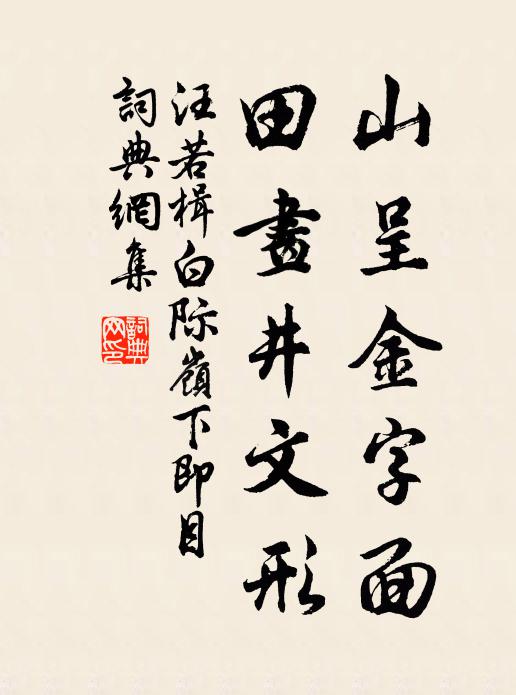 山呈金字面
田畫井文形
汪若楫白际嶺下即目
詞典網集
詞典网印